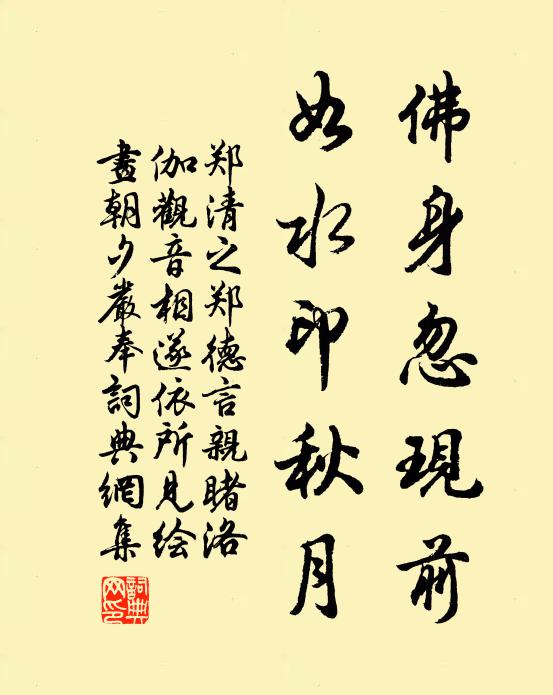 佛身忽現前
如水印秋月
郑清之郑德言親睹洛
伽觀音相遂依所見绘
畫朝夕嚴奉詞典網集
詞典网印